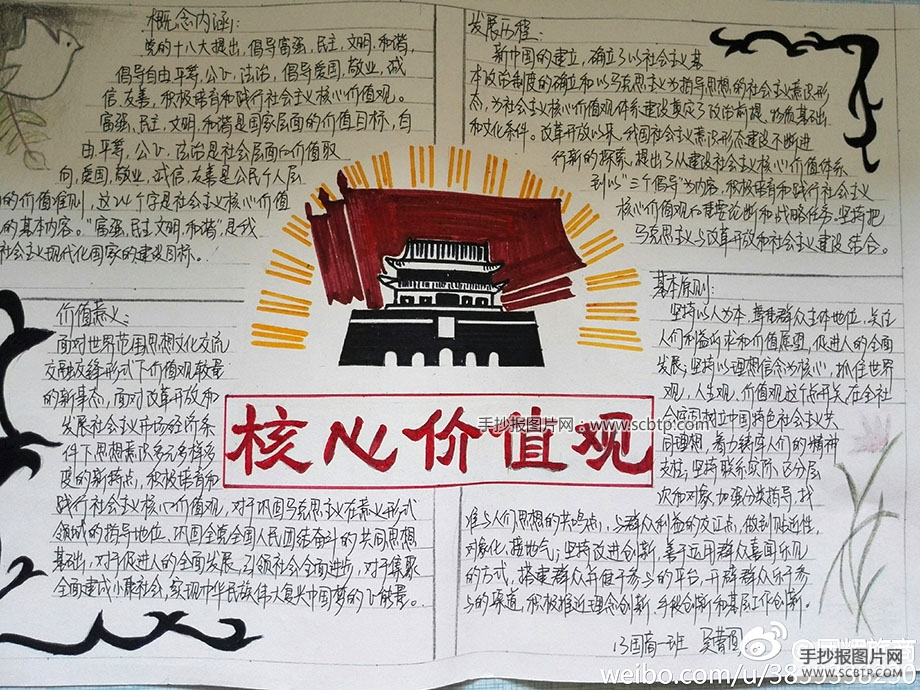 概念内涵:
党的十八大提出,倡导富强,民主,文明,和谐,
倡导自由平等,公正,法治,倡导爱国,敬业,诚
信,友善,积极培育和践行社会主义核心价值观。
富强,民主,文明,和谐是国家层面的价值目标,自
由,平等,公正,法治是社会层面的价值取
向,爱国,敬业,诚信,友善是公民个人层
的价值准则,这24个字是社会核心价值
的基本内容。"富强,民主,文明,和谐"是我
社会主义现代化国家的建设目标。
发展历程:
新中国的建立,确立了以社会主义基
本政治制度的确立和以马克思主义为指导思想的社会主义意识形
态,为社会主义核心价值观体系建设奠定了政治前提,物质基础
和文化条件。改革开放以来,我国社会主义意识形态建设不断进
行新的探索,提出了从建设社会主义核心价值体系
到以"三个倡导"为内容,积极培育和践行社会主义
核心价值观的重要论断和战略任务,坚持把
马克思主义与改革开放和社会主义建设结合。
价值意义:
面对世界范围思想文化交流
交融交锋形式下价值观较量
的新事态,面对改革开放和
发展社会主义市场经济条
件下思想意识多元多样多
变的新特点,积极培育和
践行社会主义核心价值观,对于巩固马克思主义在意义形式
领域的指导地位,巩固全党全国人民团结奋斗的共同思想
基础,对于促进人的全面发展,引领社会全面进步,对于集聚
全面建成小康社会,实现中华民族伟大复兴中国梦的正能量。
基本原则:
坚持以人为本,尊重群众主体地位,关注
人们利益诉求和价值愿望,促进人的全面
发展;坚持以理想信念为核心,抓住世界
观,人生观,价值观这个总开关,在全社
会牢固树立中国特色社会主义共
同理想,着力铸牢人们的精神
支柱;坚持联系实际,区分层
次和对象,加强分类指导,找
准与人们思想的共鸣点,与群众利益的交汇点,做到贴近性,
对象化,接地气;坚持改进创新,善于运用群众喜闻乐见
的方式,搭建群众便于参与的平台,开辟群众乐于参
与的渠道,积极推进理念创新,手段创新和基层工作创新。
核心价值观
手抄报图片网:www.scbtp.com
13国商一班
手抄报图片网
WWW.SCBTP.COM